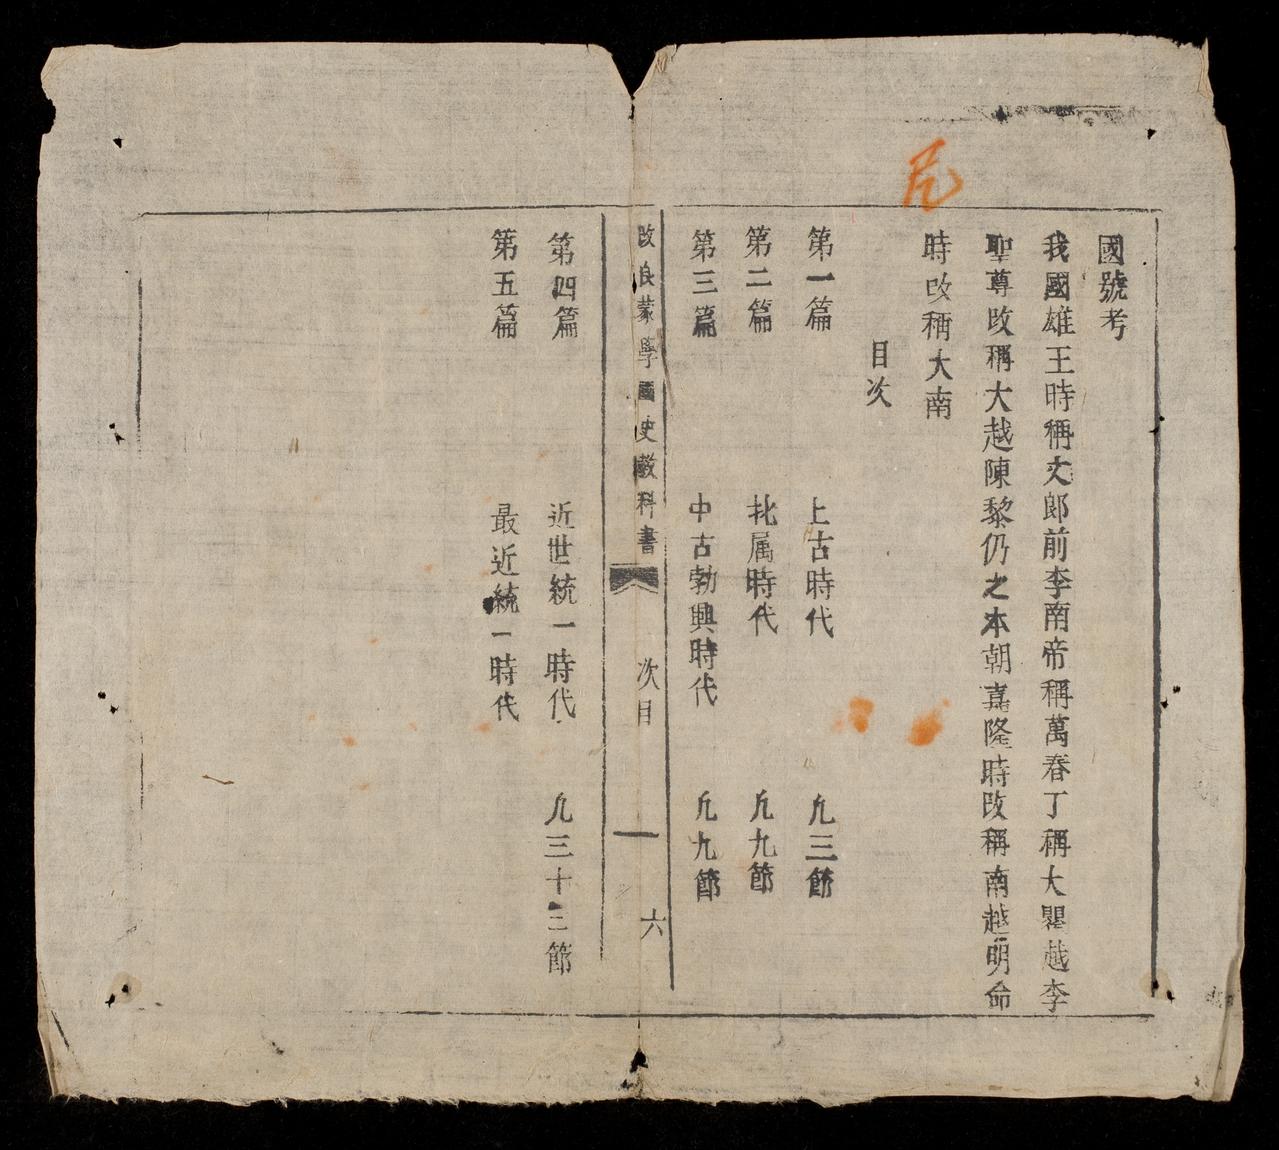 國號考
我國雄王時稱文郎前李南帝稱萬春丁稱大瞿越李
聖尊改稱大越陳黎仍之本朝嘉隆時改稱南越明命
時改稱大南
目次
第一篇 上古時代 凢三節
第二篇 北属時代 凢九節
第三篇 中古勃興時代 凢九節
改良蒙學國史教科書 次目 一 六
第四篇 近世統一時代 凢三十二節
第五篇 最近統一時代